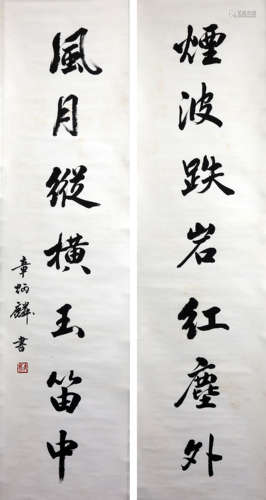 煙波跌岩红塵外
風月縱橫玉笛中
章炳麟書